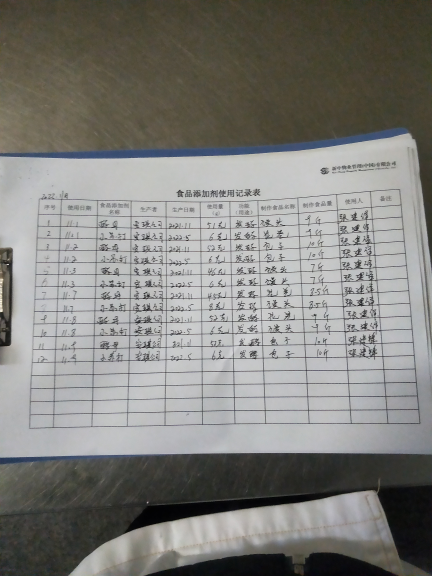 新中物业管理(中国)有限公司
2022.11月
食品添加剂使用记录表
序号 使用日期 食品添加剂名称 生产者 生产日期 使用量(g) 功能(用途) 制作食品名称 制作食品量 使用人 备注
1 11.1 酵母 安琪公司 2021.11 51克 发酵 馒头 9斤 张建锋
2 11.1 小苏打 安琪公司 2022.5 6克 发酵 9斤 张建锋
3 11.2 酵母 安琪公司 2021.11 52克 发酵 包子 10斤 张建锋
4 11.2 小苏打 安琪公司 2022.5 6克 发酵 包子 10斤 张建锋
5 11.3 酵母 安琪公司 2021.11 发酵 馒头 7斤 张建锋
6 11.3 小苏打 安琪公司 2022.5 6克 发酵 馒头 7斤 张建锋
7 11.7 酵母 安琪公司 2021.11 发酵 8.5斤 张建锋
8 11.7 小苏打 安琪公司 2022.5 8克 发酵 馒头 8.5斤 张建锋
9 11.8 酵母 安琪公司 2021.11 52克 发酵 9斤 张建锋
10 11.8 小苏打 安琪公司 2022.5 6克 发酵 馒头 9斤 张建锋
11 11.9 酵母 安琪公司 2021.11 发酵 包子 10斤 张建锋
12 11.9 小苏打 安琪公司 2022.5 6克 发酵 包子 10斤 张建锋